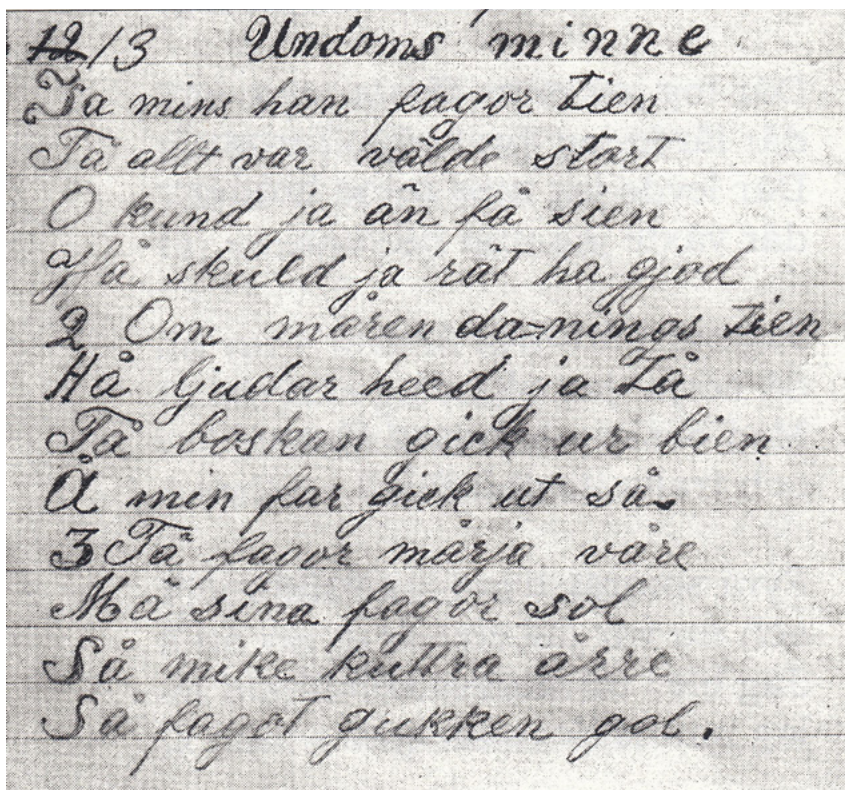 12/3 Undoms minne
Ja mins han fagor tien
Tå allt var välde stort
O kund ja än få sien
Hå skuld ja rät ha gjod
2 Om måren da=nings tien
Hå ljudar heed ja tå
Tå boskan gick ur bien
Å min far gick ut så.
3 Tå fagor mårja våre
Mä sina fagor sol
Så mike kuttra årre
Så fagot gukken gol.